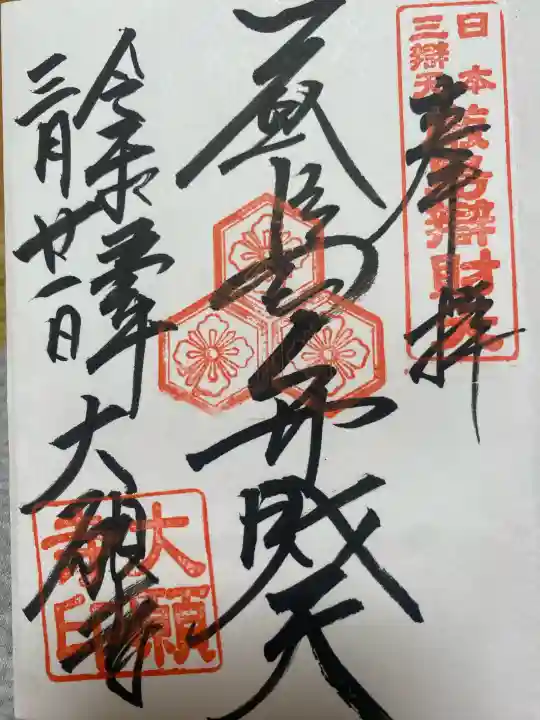 奉拝
日本
三辯天
厳島辯財天
厳島弁財天
令和六年
三月廿一日
大願寺
大願
寺印